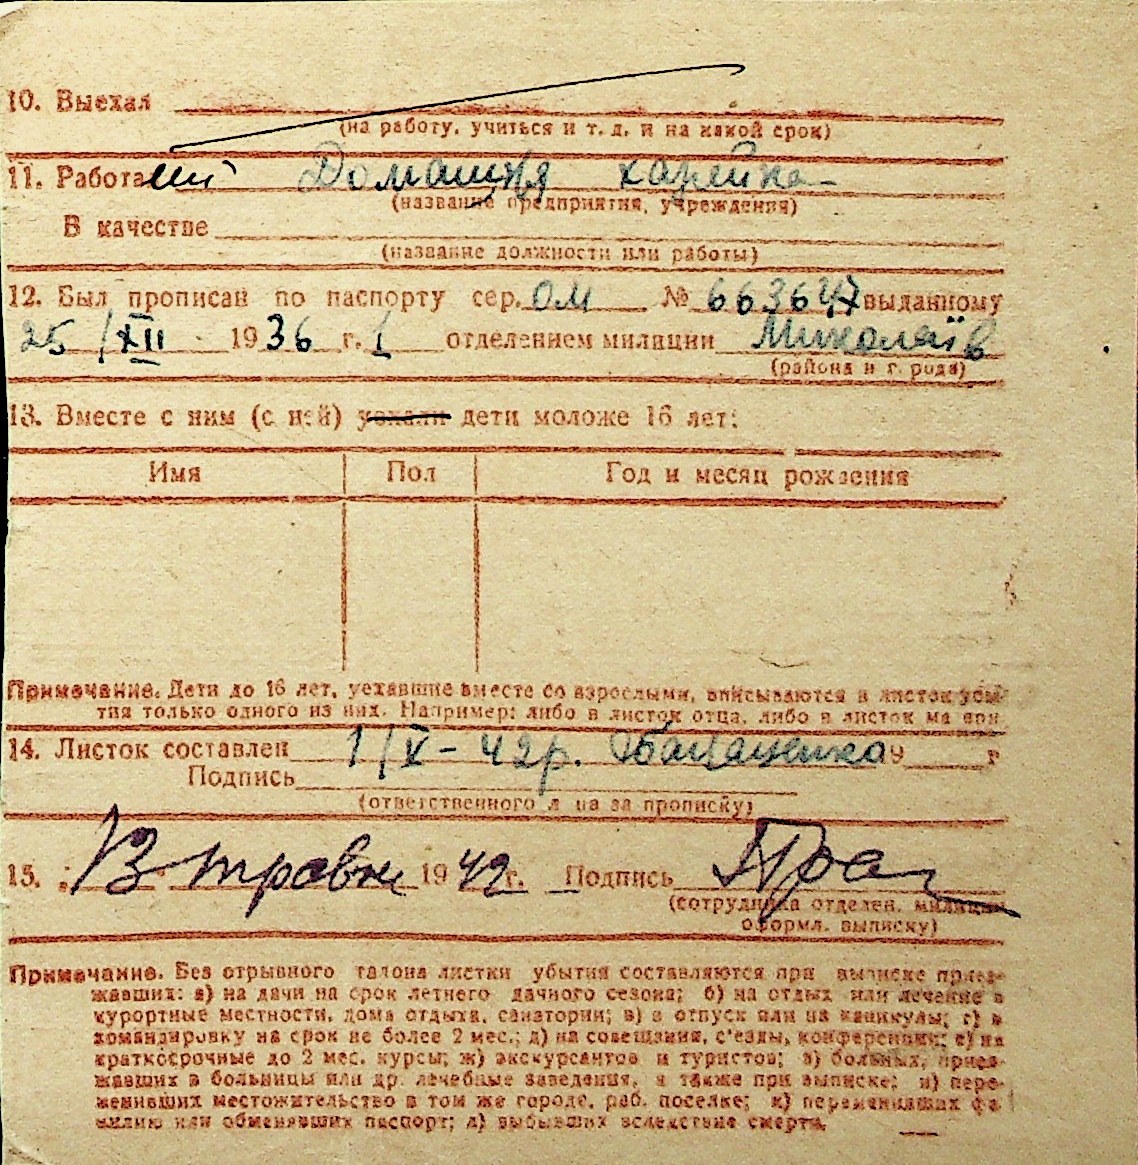 10. Выехал
(на работу, учиться и т. д. и на какой срок)
11. Работа Домашня хазяйка
(название предприятия, учреждения)
В качестве
(название должности или работы)
12. Был прописан по паспорту сер. ОМ № 663647 выданному
25/XII 1936 г. 1 отделением милиции Миколаїв
(района и г. рода)
13. Вместе с ним (с ней) уехали дети моложе 16 лет:
Имя Пол Год и месяц рождения
Примечание. Дети до 16 лет, уехавшие вместе со взрослыми, вписываются в листок убы-
тия только одного из них. Например: либо в листок отца, либо в листок ма ери.
14. Листок составлен 1/V-42р. 9 г
Подпись
(ответственного л ца за прописку)
15. 13 травня 1942 г. Подпись
(сотрудника отделен. милиции
оформл. выписку)
Примечание. Без отрывного талона листки убытия составляются при выписке приез-
жавших: а) на дачи на срок летнего дачного сезона; б) на отдых или лечение в
курортные местности, дома отдыха, санатории; в) в отпуск или на каникулы; г) в
командировку на срок не более 2 мес.; д) на совещания, с'езды, конференции; е) на
краткосрочные до 2 мес. курсы; ж) экскурсантов и туристов; з) больных, приез-
жавших в больницы или др. лечебные заведения, а также при выписке; и) пере-
менивших местожительство в том же городе, раб. поселке; к) переменивших фа-
милию или обменявших паспорт; л) выбывших вследствие смерти.